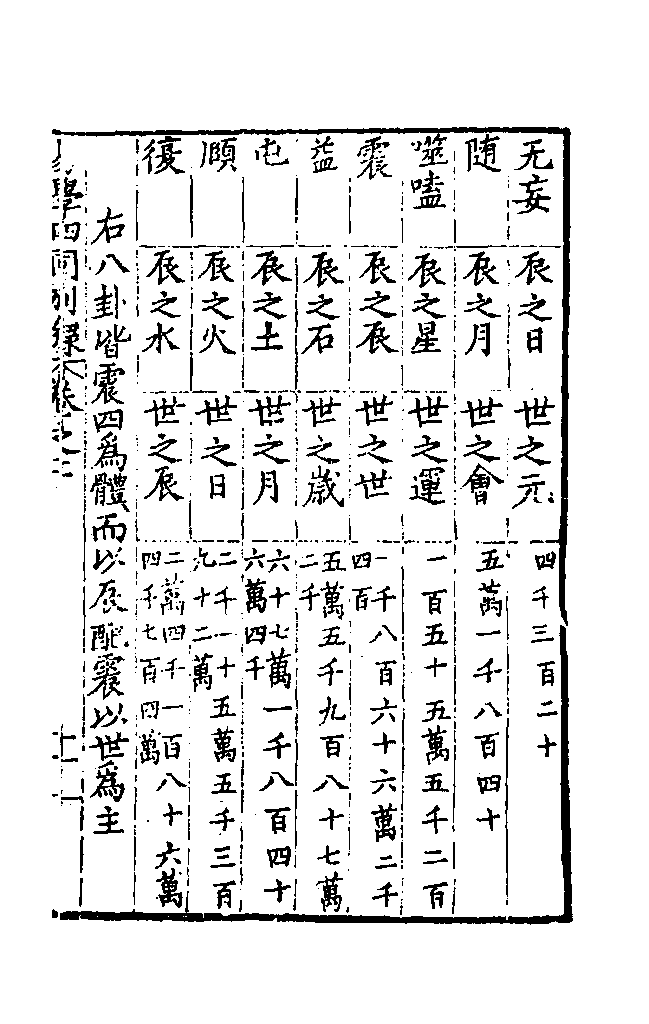 无妄 辰之日 世之元 四千三百二十
随 辰之月 世之會 五萬一千八百四十
噬嗑 辰之星 世之運 一百五十五萬五千二百
震 辰之辰 世之世 一千八百六十六萬二千四百
益 辰之石 世之歲 五萬五千九百八十七萬二千
屯 辰之土 世之月 六十七萬一千八百四十六萬四千
頤 辰之火 世之日 二千一十五萬五千三百九十二萬
復 辰之水 世之辰 二萬四千一百八十六萬四千七百四萬
右八卦皆震四爲體而以辰配震以世爲主
學四同別錄卷之